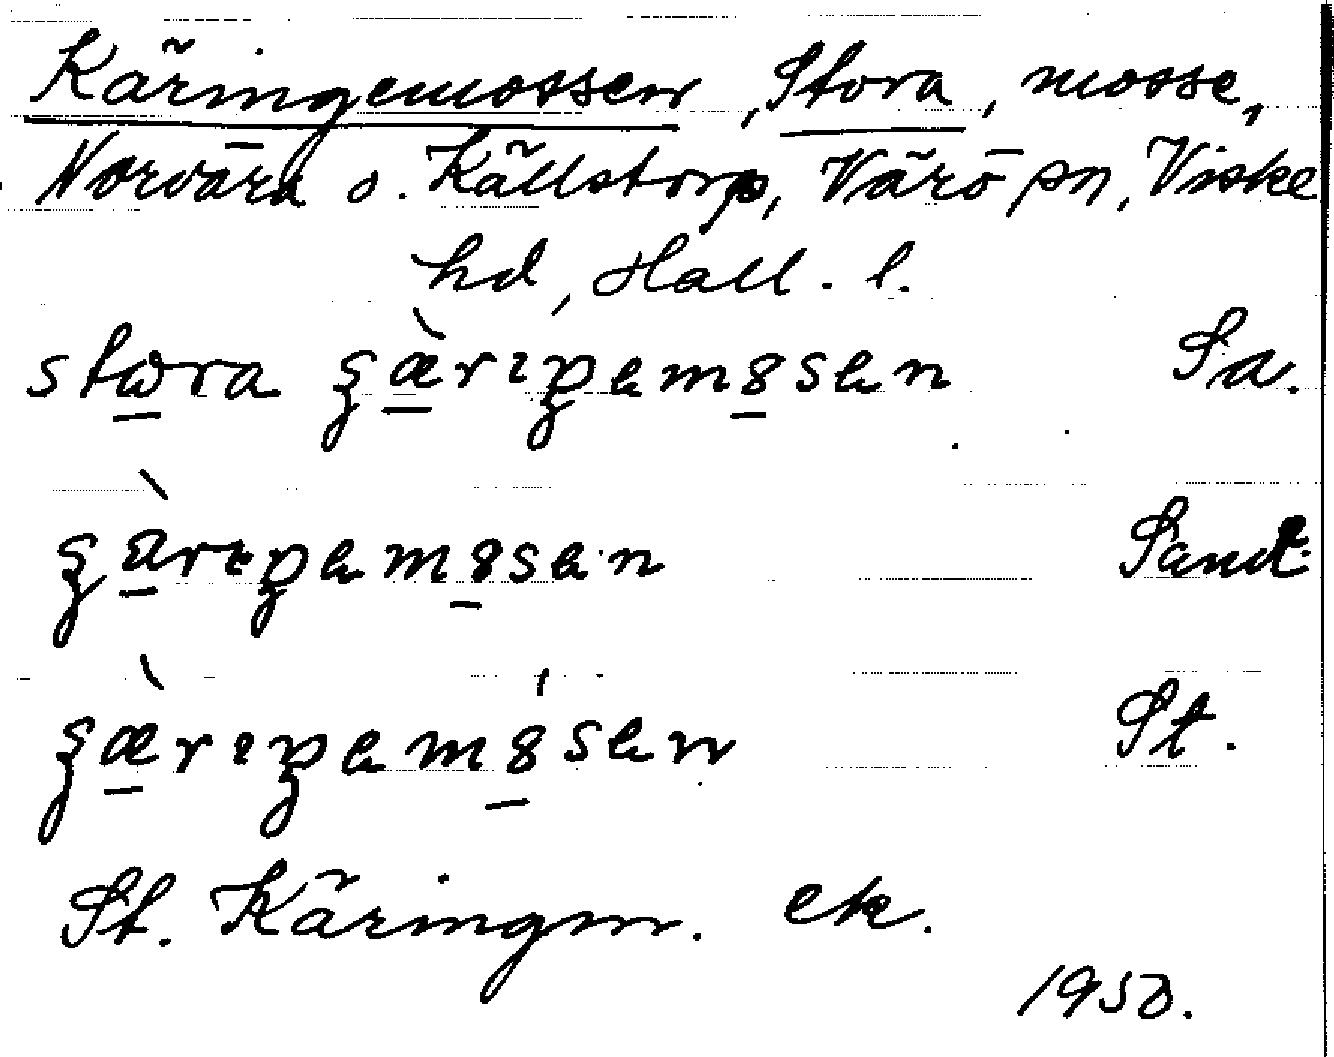 Käringemossen, Stora, mosse,
Norvära o. Källstorp, Värö sn, Viske
hd, Hall. l.
stωra ʒæ̀rıŋemɞsen Sa.
ʒæ̀rıŋemɞsen Sand.
ʒæ̀rıŋemɞ́sen St.
St. Käringm. ek.
1950.